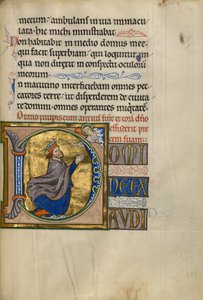 mecum: ambulans in uia immacu
lata: hic michi ministrabat.
Non habitabit in medio domus mee
qui facit superbiam: qui loquitur ini
qua non direxit in conspectu oculorum
meorum.
In matutino interficiebam omnes pec
catores terre: ut disperderem de ciuita
te domini omnes operantes iniquitatem.
Oratio pauperis cum anxius fuit et cora
domino effuderit pre
cem suam.
D OMI
NE EX
AUDI